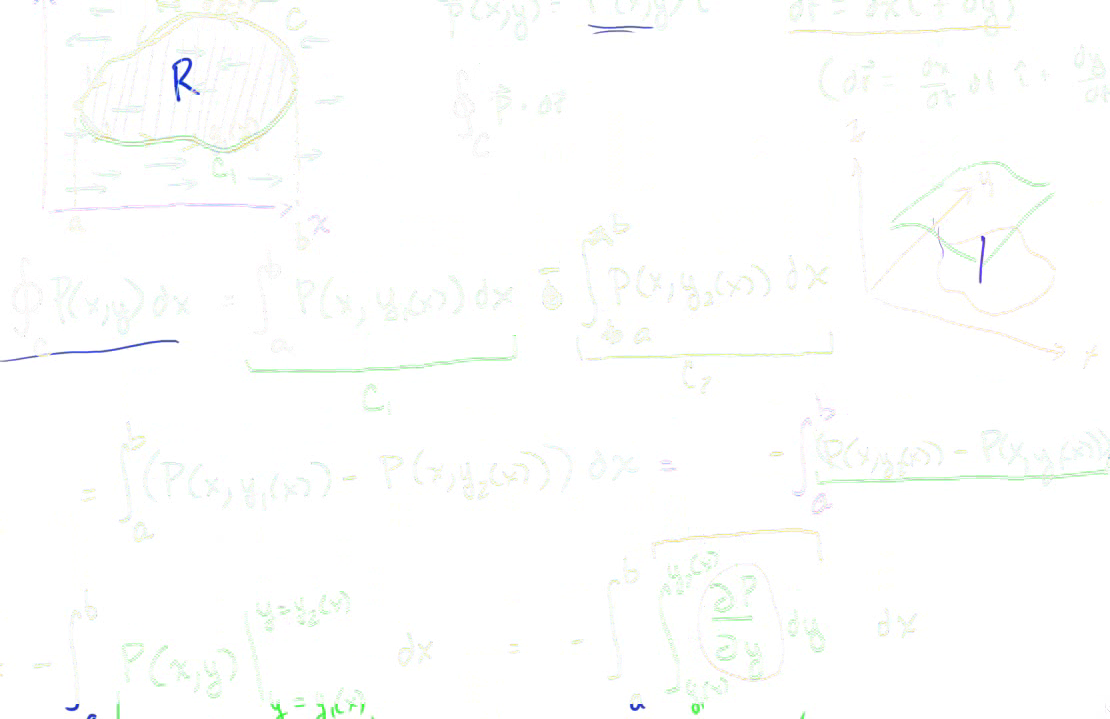 P(x,y) =
dr = dx i + dy j
C
R
∮_C P · dr
(dr = dx/dt dt i + dy/dt
C₁
a b x
z
y
x
∮_C P(x,y) dx = ∫_a^b P(x, y₁(x)) dx - ∫_a^b P(x, y₂(x)) dx
C₁ C₂
= ∫_a^b (P(x, y₁(x)) - P(x, y₂(x))) dx = - ∫_a^b (P(x, y₂(x)) - P(x, y₁(x)))
= - ∫_a^b P(x,y) |_{y = y₁(x)}^{y = y₂(x)} dx = - ∫_a^b ∫_{y₁(x)}^{y₂(x)} ∂P/∂y dy dx